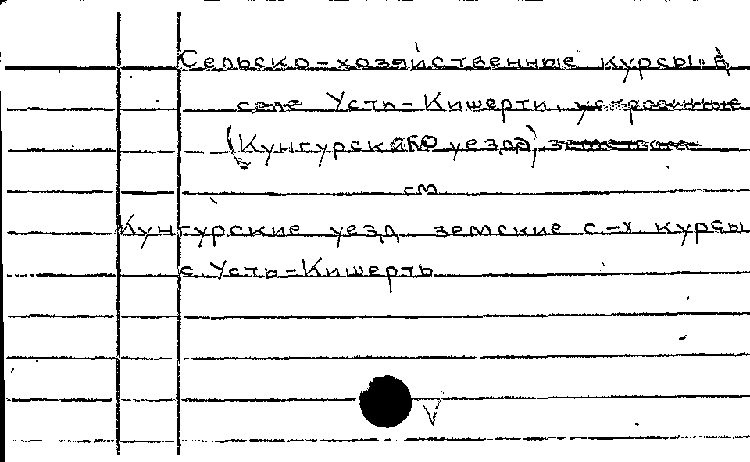 Сельско-хозяйственные курсы в
селе Усть-Кишерти, устроенные
(Кунгурского уезда) земством
см
Кунгурские уезд. земские с.-х курсы
с. Усть-Кишерть